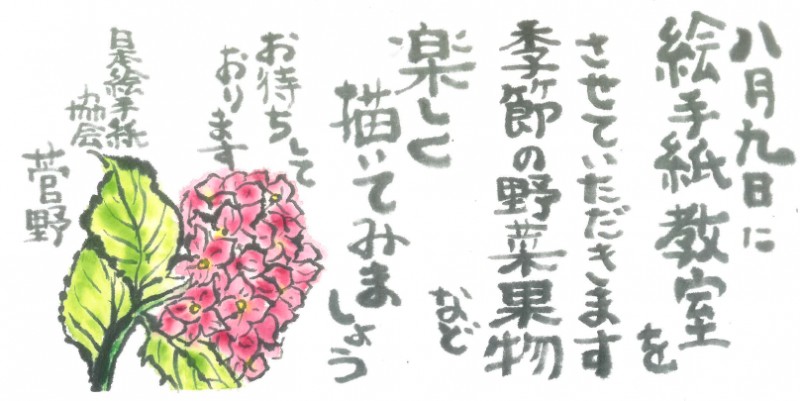 八月九日に
絵手紙教室を
させていただきます
季節の野菜果物
など
楽しく
描いてみましょう
お待ちして
おります
日本絵手紙
協会
菅野